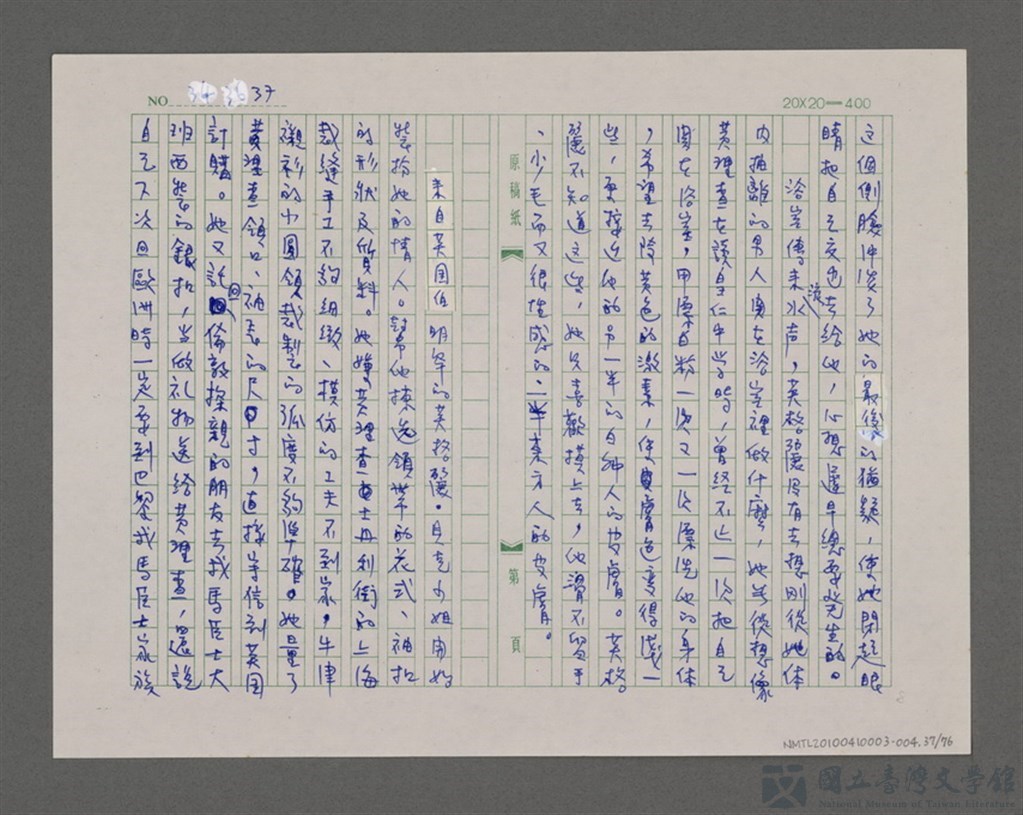 NO 34 36 37
20X20—400
這個側臉沖淡了她的最後的猶疑，使她閉起眼
睛把自己交出去給他，心想遲早總要發生的。
浴室傳來流水声，英格麗沒有去想剛從她体
内抽離的男人關在浴室裡做什麼，她無從想像
黃理查在讀皇仁中学時，曾經不止一次把自己
關在浴室，用漂白粉一次又一次漂洗他的身体
，希望去除黃色的激素，使膚色變得淺一
些，更接近他的另一半的白种人的皮膚。英格
麗不知道這些，她只喜歡摸上去，他滑不留手
、少毛而又很性感的、東方人的皮膚。
原稿紙
第 頁
來自英国伯明罕的英格麗．貝克小姐開始
裝扮她的情人。幫他揀选領帶的花式、袖扣
的形狀及質料。她嫌黃理查士丹利街的上海
裁縫手工不夠細緻、模仿的工夫不到家，牛津
襯衫的小圓領裁製的弧度不夠準確。她量了
黃理查領口、袖長的尺寸，直接写信到英国
訂購。她又託回倫敦探親的朋友去找馬臣士大
班西裝的銀扣，当做礼物送給黃理查，還說
自己下次回歐洲時一定要到巴黎找馬臣士家族
NMTL20100410003-004.37/76
國立臺灣文學館
National Museum of Taiwan Literature